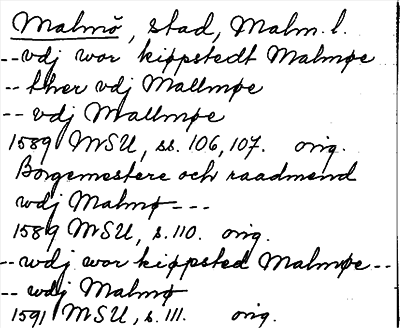 Malmö, stad, Malm. l.
-- vdj wor kippstedt Malmøe
-- ther vdj Mallmøe
-- vdj Mallmøe
1589 MSU, ss. 106, 107. orig.
Borgemestere och raadmend
wdj Malmø ---
1589 MSU, s. 110. orig.
-- wdj wor kippsted Malmøe --
-- wdj Malmø
1591 MSU, s. 111. orig.